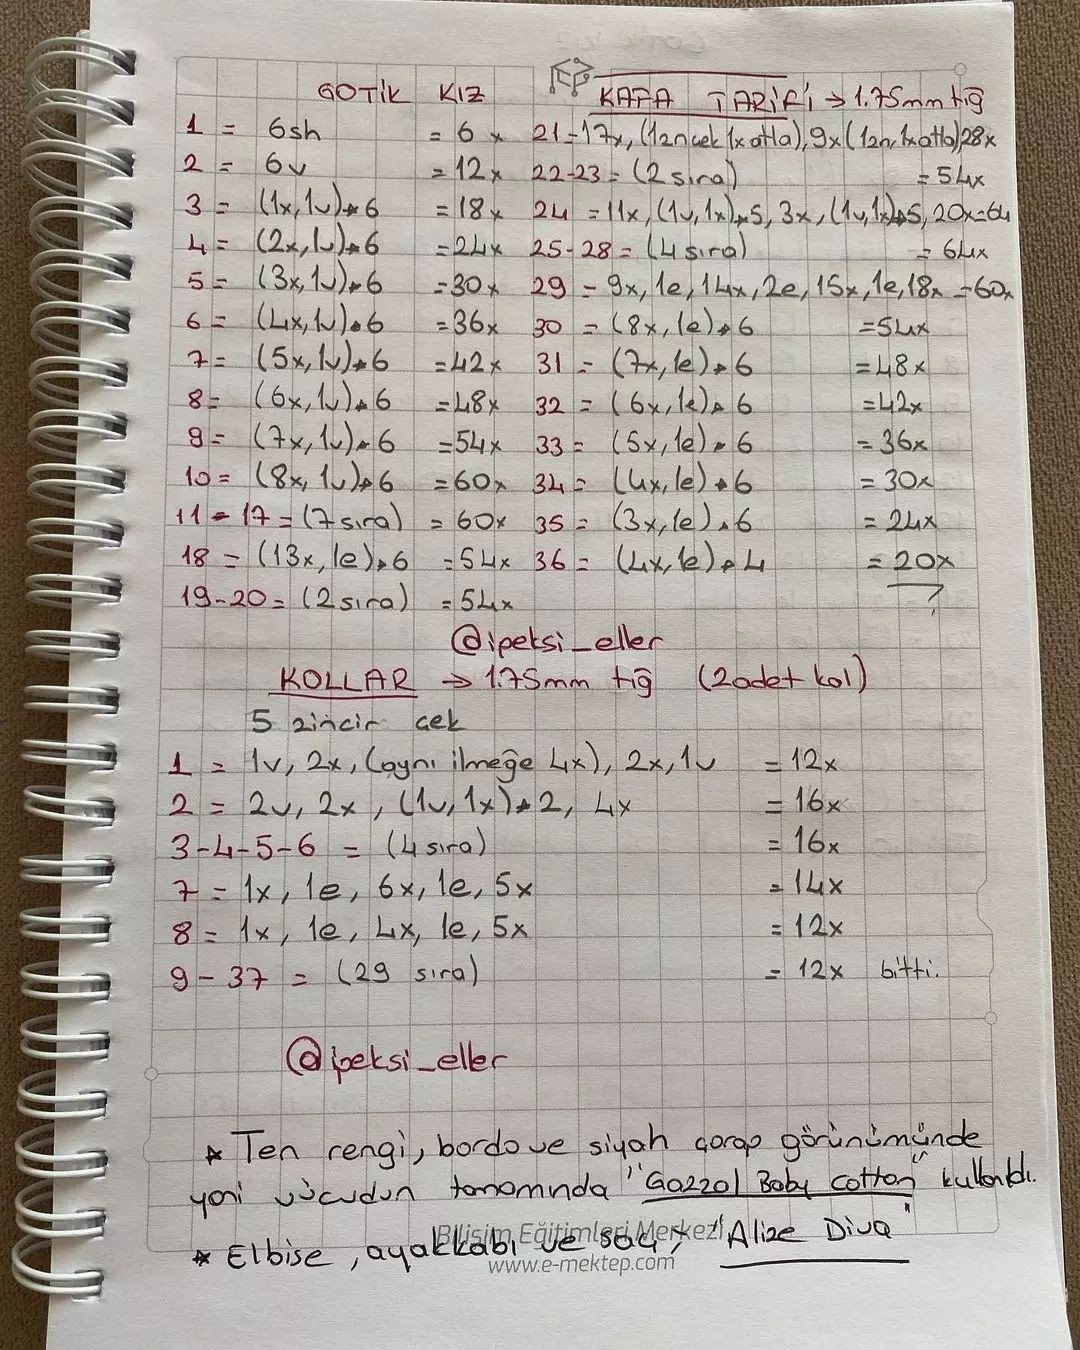 GOTİK KIZ KAFA TARİFİ → 1.75mm tığ
1 = 6sh = 6x
2 = 6v = 12x
3 = (1x, 1v)*6 = 18x
4 = (2x, 1v)*6 = 24x
5 = (3x, 1v)*6 = 30x
6 = (4x, 1v)*6 = 36x
7 = (5x, 1v)*6 = 42x
8 = (6x, 1v)*6 = 48x
9 = (7x, 1v)*6 = 54x
10 = (8x, 1v)*6 = 60x
11-17 = (7 sıra) = 60x
18 = (13x, 1e)*6 = 54x
19-20 = (2 sıra) = 54x
21 = 17x, (12n çek 1x atla), 9x (12n, 1x atla) 28x
22-23 = (2 sıra) = 54x
24 = 11x, (1v, 1x)*5, 3x, (1v, 1x)*5, 20x = 64
25-28 = (4 sıra) = 64x
29 = 9x, 1e, 14x, 2e, 15x, 1e, 18x = 60x
30 = (8x, 1e)*6 = 54x
31 = (7x, 1e)*6 = 48x
32 = (6x, 1e)*6 = 42x
33 = (5x, 1e)*6 = 36x
34 = (4x, 1e)*6 = 30x
35 = (3x, 1e)*6 = 24x
36 = (4x, 1e)*4 = 20x
?
@ipeksi_eller
KOLLAR → 1.75mm tığ (2 adet kol)
5 zincir çek
1 = 1v, 2x, (aynı ilmeğe 4x), 2x, 1v = 12x
2 = 2v, 2x, (1v, 1x)*2, 4x = 16x
3-4-5-6 = (4 sıra) = 16x
7 = 1x, 1e, 6x, 1e, 5x = 14x
8 = 1x, 1e, 4x, 1e, 5x = 12x
9-37 = (29 sıra) = 12x bitti.
@ipeksi_eller
* Ten rengi, bordo ve siyah çorap görünümünde
yani vücudun tamamında "Gazzal Baby cotton" kullanıldı.
* Elbise, ayakkabı ve saç; "Alize Diva"
Bilişim Eğitimleri Merkezi
www.e-mektep.com